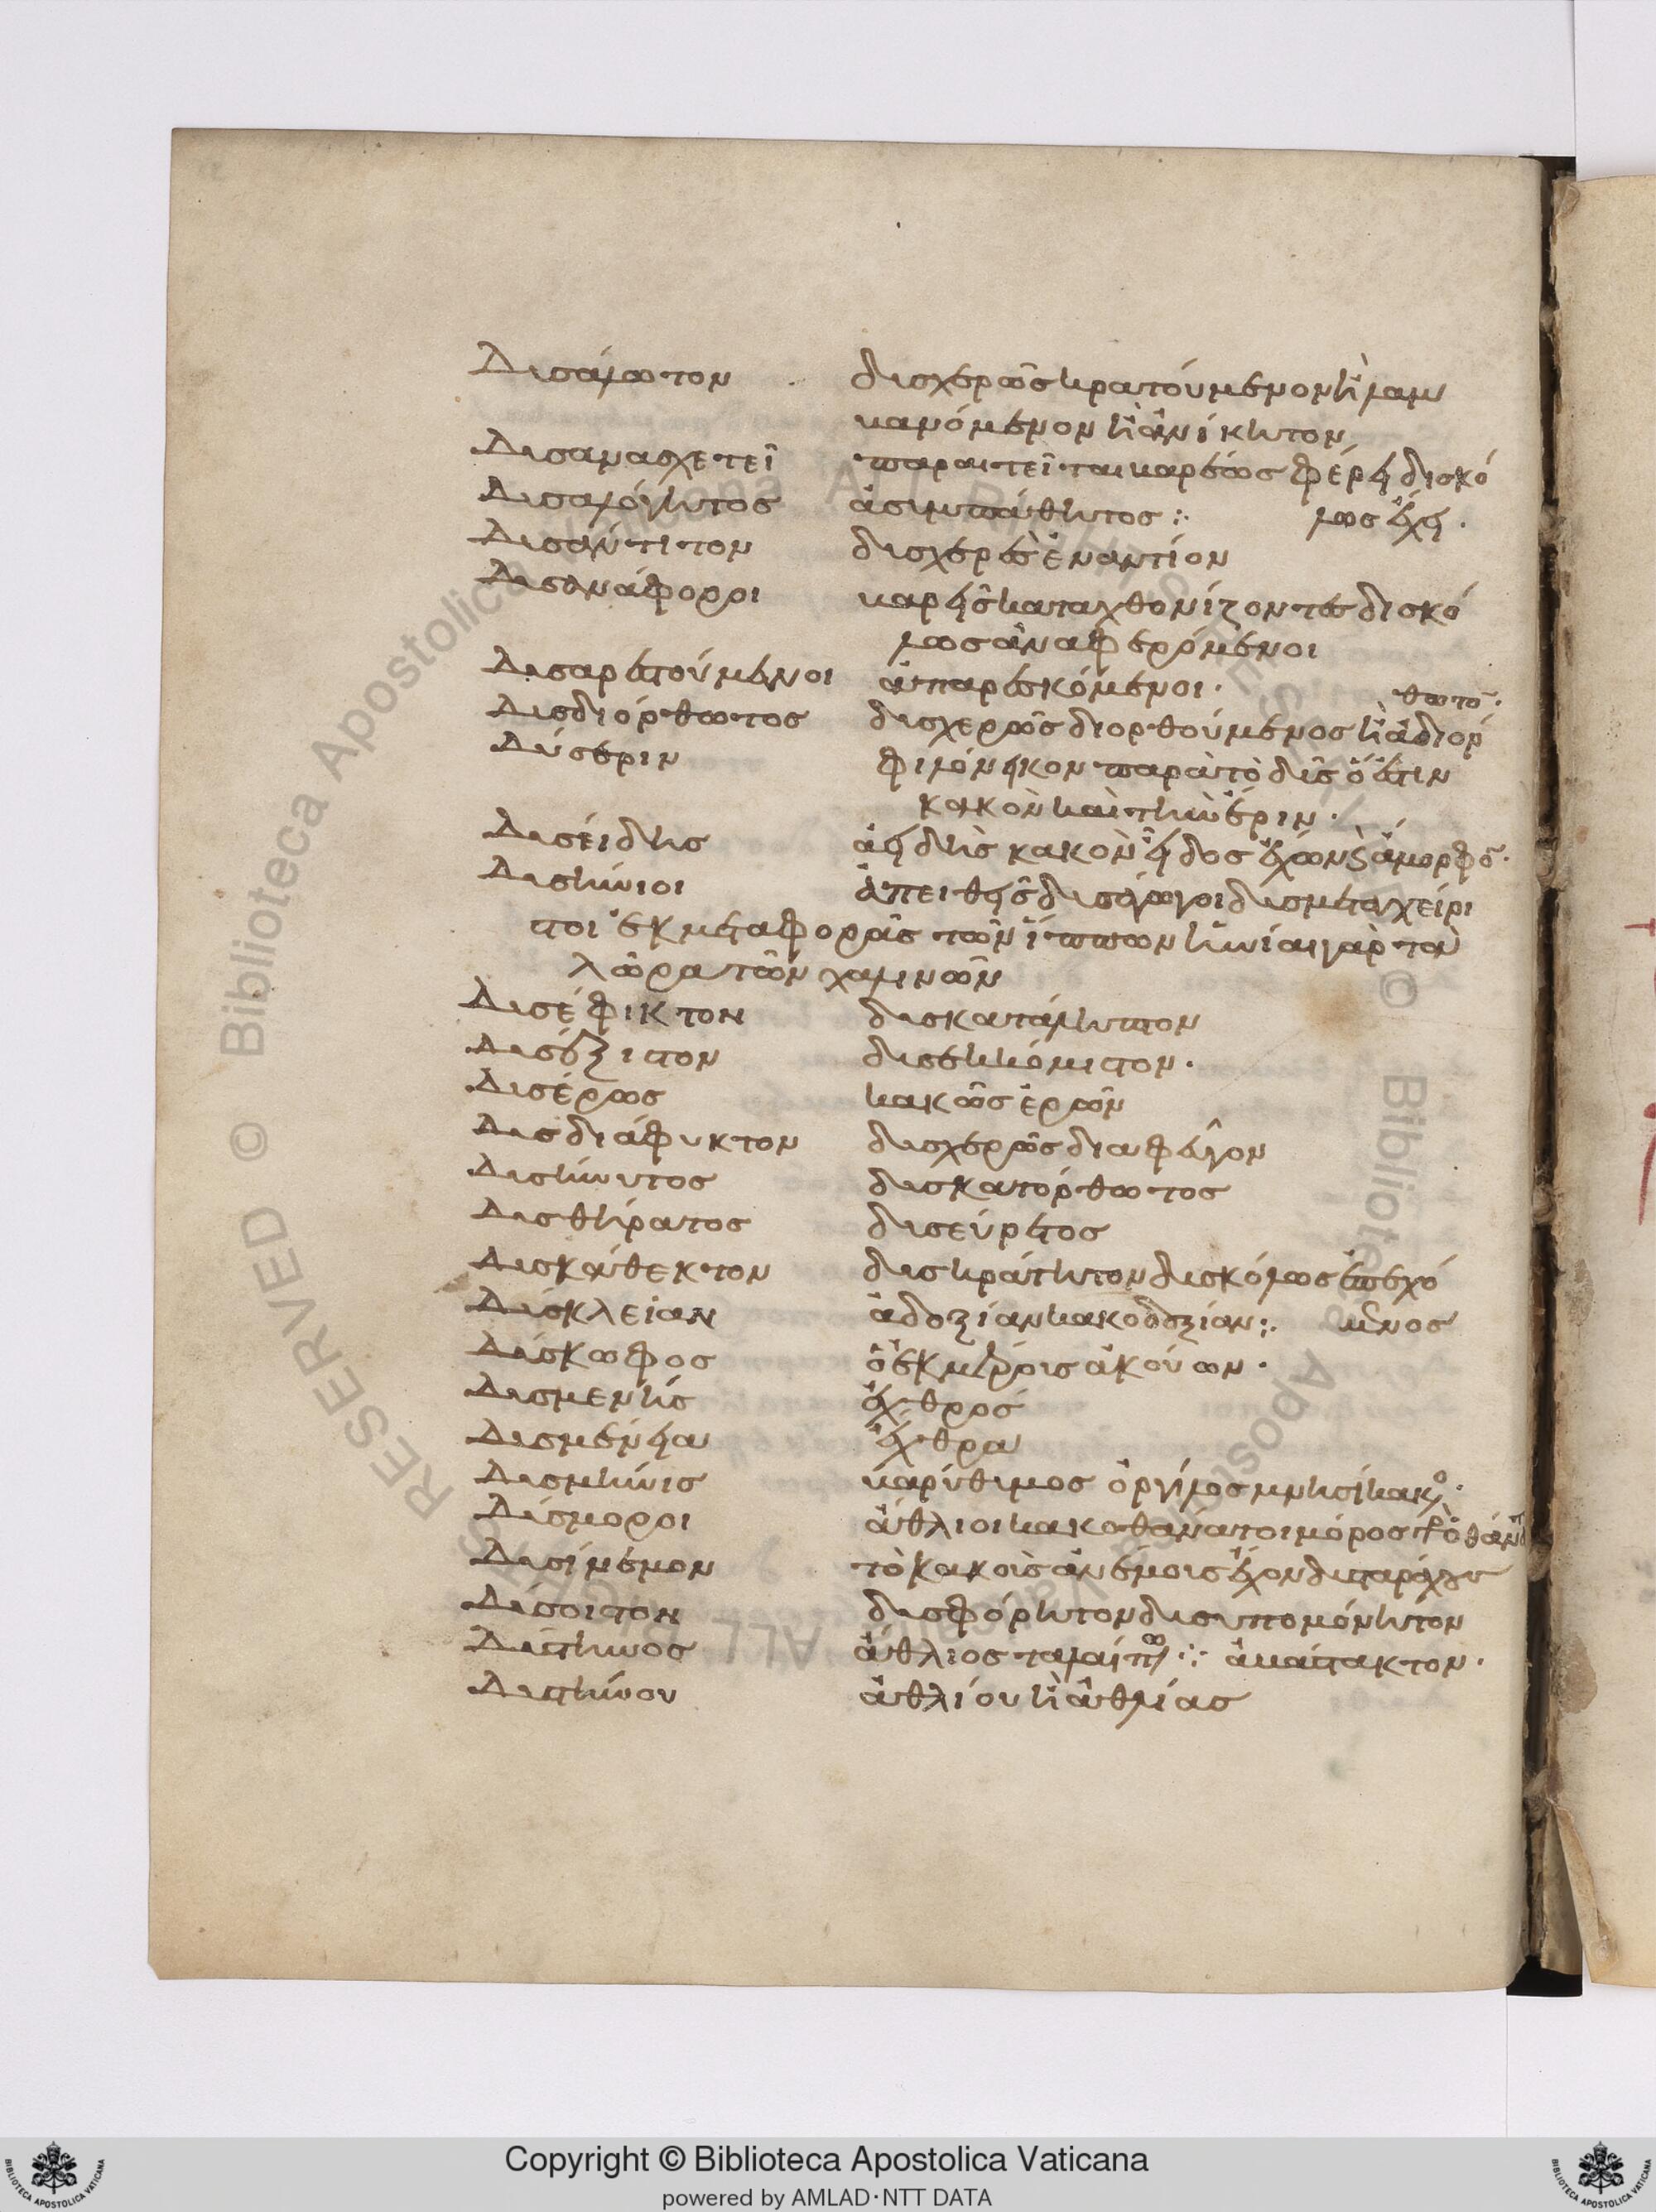 Δυσάλωτον δυσχερῶς κρατούμενον ἢ λαμ
βανόμενον ἢ ἀνίκητον
Δυσανασχετεῖ παραιτεῖται βαρέως φέρει δυσκό
Δυσάλγητος ἀσυμπάθητος :· λως ἔχει ·
Δυσάντιτον δυσχερὲς ἐναντίον
Δυσανάφοροι βαρεῖς δυσκό
λως ἀναφερόμενοι
Δυσαρεστούμενοι ἀπαρεσκόμενοι · θωτο ·
Δυσδιόρθωτος δυσχερῶς διορθούμενος ἢ ἀδιόρ
Δύσεριν φιλόνεικον παρὰ τὸ δυς ὅ ἐστιν
κακὸν καὶ τὴν ἔριν ·
Δυσειδής ἀειδὴς κακὸν εἶδος ἔχων ἄμορφο ·
Δυσήνιοι ἀπειθεῖς δυσάγωγοι δυσμεταχείρι
στοι ἐκ μεταφορᾶς τῶν ἵππων ἡνία γὰρ τὰ
λῶρα τῶν χαλινῶν
Δυσέφικτον δυσκατάληπτον
Δυσέξιτον δυσεκκόμιστον ·
Δυσέρως κακῶς ἐρῶν
Δυσδιάφυκτον δυσχερῶς διαφεῦγον
Δυσήνυτος δυσκατόρθωτος
Δυσθήρατος δυσεύρετος
Δυσκάθεκτον δυσκράτητον δυσκόλως ἐπεχό
Δύσκλειαν ἀδοξίαν κακοδοξίαν :· μενος
Δύσκωφος ὁ ἐκ μέρους ἀκούων ·
Δυσμενής ἐχθρός
Δυσμένεια ἔχθρα
Δυσμηνις βαρύθυμος ὀργίλος μνησίκακο ·
Δύσμοροι ἄθλιοι κακοθάνατοι μόρος γὰρ ὁ θάνατ
Δυσήνεμον τὸ κακοὺς ἀνέμους ἔχον
Δύσοιστον δυσφόρητον δυσυπομόνητον
Δύστηνος ἄθλιος ταλαίπω :· ἀκάτακτον ·
Δυστήνου ἀθλίου ἢ ἀθλίας
Copyright © Biblioteca Apostolica Vaticana
powered by AMLAD·NTT DATA